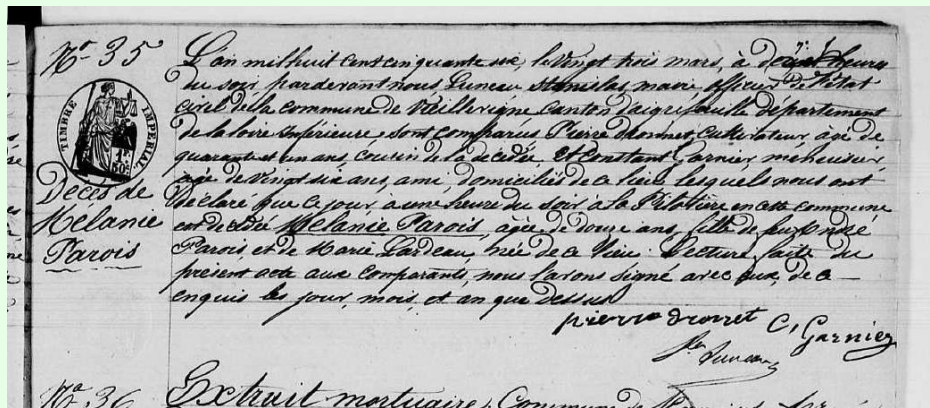 No 35
Décès de
Mélanie
Parois
TIMBRE IMPÉRIAL
L'an mil huit cent cinquante six, le vingt trois mars, à heures
du soir pardevant nous Luneau Stanislas, maire officier de l'état
civil de la commune de Vieillevigne Canton d'aigrefeuille département
de la loire Inférieure, sont comparus Pierre Drouet, cultivateur, âgé de
quarante et un ans, cousin de la décédée, et Constant Garnier menuisier
âgé de vingt six ans, ami, domiciliés de ce lieu, lesquels nous ont
déclaré que ce jour à une heure du soir à la Pilotière en cette commune
est décédée Mélanie Parois, âgée de douze ans, fille de feu
Parois, et de Marie Lardeau, née de ce lieu. Lecture faite du
présent acte aux comparants, nous l'avons signé avec eux, de ce
enquis les jour, mois, et an que dessus
pierre drouet C, Garnier
Luneau
No 36
Extrait mortuaire, Commune de